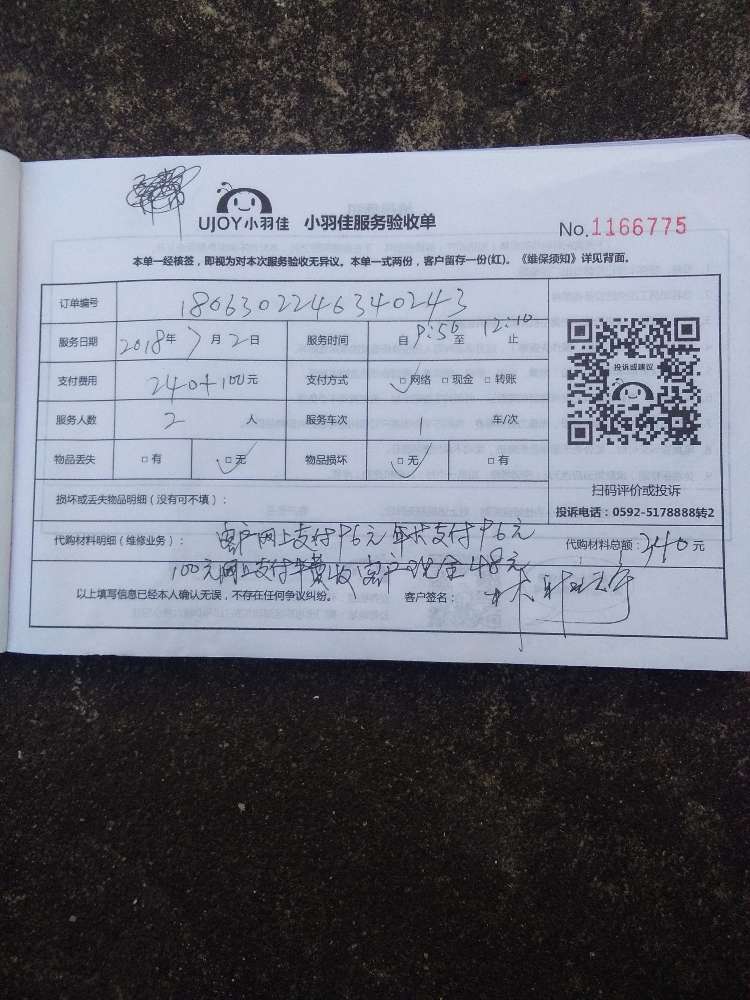 UJOY小羽佳 小羽佳服务验收单
No.1166775
本单一经核签，即视为对本次服务验收无异议。本单一式两份，客户留存一份(红)。《维保须知》详见背面。
订单编号 1806302246340243
服务日期 2018年7月2日 服务时间 自9:56至12:10止
支付费用 240+100元 支付方式 □网络 □现金 □转账
服务人数 2人 服务车次 1车/次
物品丢失 □有 □无 物品损坏 □无 □有
投诉或建议
扫码评价或投诉
投诉电话：0592-5178888转2
损坏或丢失物品明细（没有可不填）：
代购材料明细（维修业务）： 客户网上支付96元 年卡支付96元
代购材料总额：340元
100元网上支付车费 收客户现金48元
以上填写信息已经本人确认无误，不存在任何争议纠纷。 客户签名：